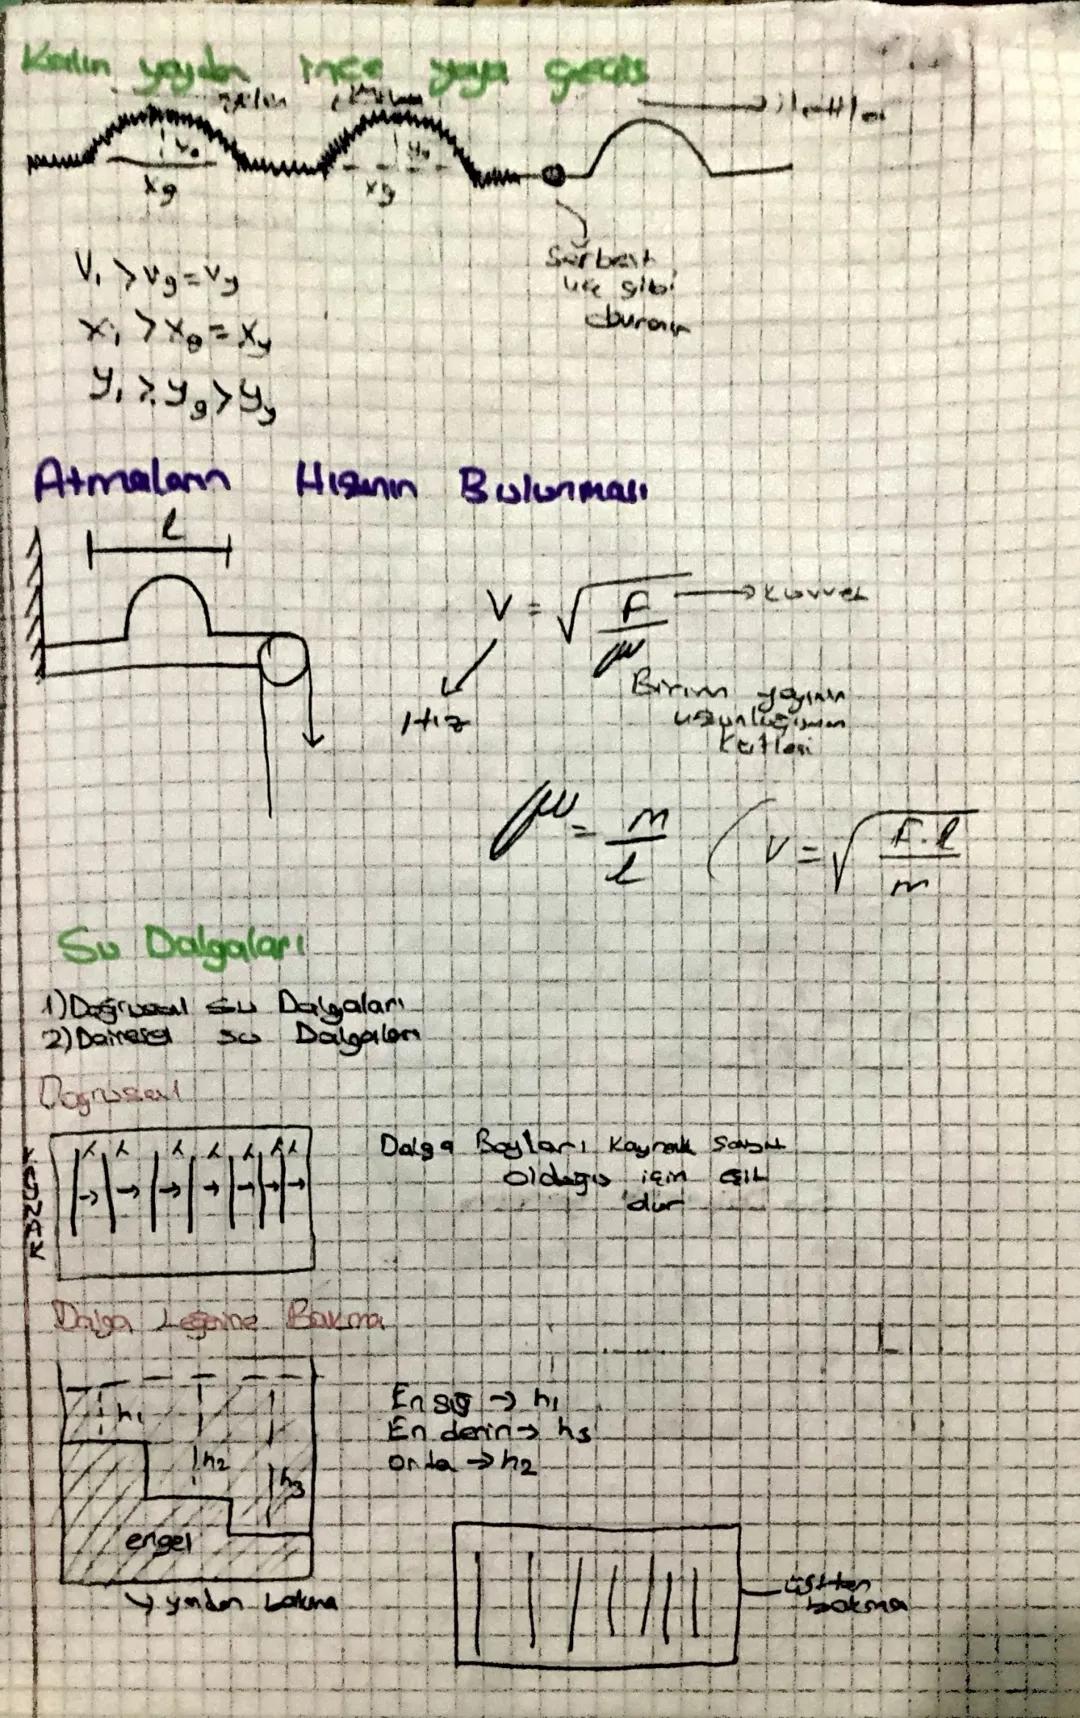 Kalın yaydan ince yaya geçiş
gelen yansıyan iletilen
y₀ y₀
xg xy
Serbest
uç gibi
davranır
Vı > Vg = Vy
xı > xg = xy
yı > yg > yy
Atmaların Hızının Bulunması
l
V = √F/μ → kuvvet
Hız
Birim yayının
uzunluğunun
kütlesi
μ = m/l ( V = √F.l/m
Su Dalgaları
1) Doğrusal su Dalgaları
2) Dairesel su Dalgaları
Doğrusal
KAYNAK
λ λ λ λ λ λ λ
Dalga Boyları kaynak sabit
olduğu için eşit
'dur
Dalga Leğenine Bakma
h₁
h₂
h₃
engel
yandan bakma
En sığ → h₁
En derin → h₃
orta → h₂
üstten
bakma